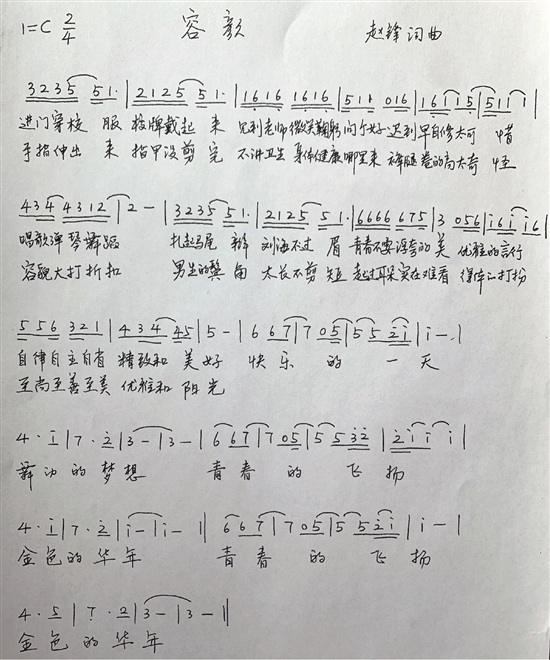 1=C 2/4 容颜 赵锋词曲
3235 51·|2125 51·|1616 1616|511 016|1615|511 1|
进门穿校 服 校牌戴起 来 见到老师微笑鞠躬问个好 迟到早自修太可 惜
手指伸出 来 指甲没剪 完 不讲卫生 身体健康哪里来 裤腿卷的高太奇 怪
434 4312|2 -|3235 51·|2125 51·|6666 675|3 056|1616|
唱歌弹琴舞蹈 扎起马尾 辫 刘海不过 眉 青春不要浮夸的美 优雅的言行
容貌大打折扣 男生的鬓 角 太长不剪 短 超过耳朵实在难看 得体的打扮
556 321|434 45|5 -|6 67|7 05|5 5 21|1 -·|
自律自主自省 精致和 美好 快乐 的 一 天
至尚至善至美 优雅和 阳光
4· 1|7· 2|3 -|3 -|667|7 05|5 5 32|21 1 1|
舞动的梦想 青春 的 飞 扬
4· 1|7· 2|1 -|1 -‖667|7 05|5 5 21|1 -|
金色的华年 青春 的 飞 扬
4· 5|7· 2|3 -|3 -‖
金色的华年